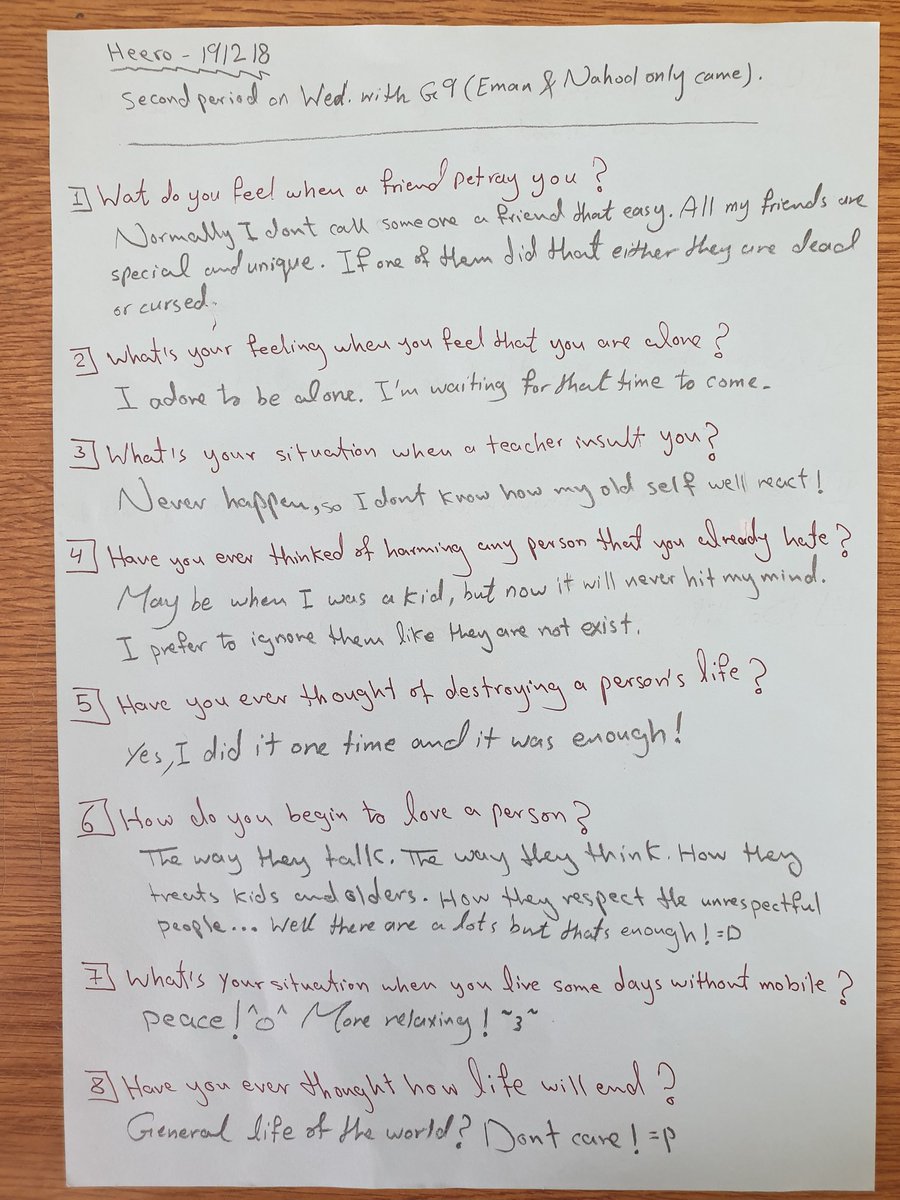 Heero - 19/2 18
Second period on Wed. with G9 (Eman & Nahool only came).
1 Wat do you feel when a friend petray you?
Normally I dont call someone a friend that easy. All my friends are
special and unique. If one of them did that either they are dead
or cursed.
2 What's your feeling when you feel that you are alone?
I adore to be alone. I'm waiting for that time to come.
3 What's your situation when a teacher insult you?
Never happen, so I dont know how my old self well react!
4 Have you ever thinked of harming any person that you already hate?
May be when I was a kid, but now it will never hit my mind.
I prefer to ignore them like they are not exist.
5 Have you ever thought of destroying a person's life?
Yes, I did it one time and it was enough!
6 How do you begin to love a person?
The way they talk. The way they think. How they
treats kids and olders. How they respect the unrespectful
people... Well there are a lots but thats enough! =D
7 What's your situation when you live some days without mobile?
Peace! ^o^ More relaxing! ~3~
8 Have you ever thought how life will end?
General life of the world? Dont care! =p